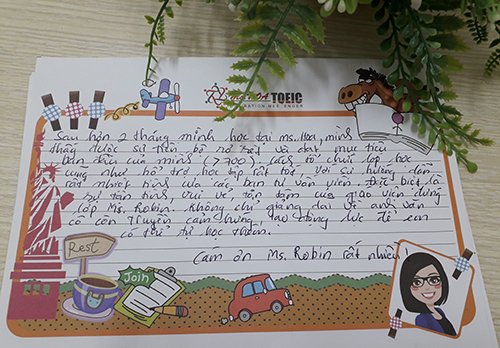 TOEIC
Sau hơn 2 tháng mình học tại Ms. Hoa, mình
thấy được sự tiến bộ rõ rệt và đạt mục tiêu
ban đầu của mình (>700). Cách tổ chức lớp học
cũng như hỗ trợ học tập rất tốt, với sự hướng dẫn
rất nhiệt tình của các bạn tư vấn viên. Đặc biệt là
sự tận tình, vui vẻ, tận tâm của giáo viên đứng
lớp Ms. Robin. Không chỉ giảng dạy về anh văn
cô còn truyền cảm hứng, tạo động lực để em
có thể tự học thêm.
Cảm ơn Ms. Robin rất nhiều
Rest
Join